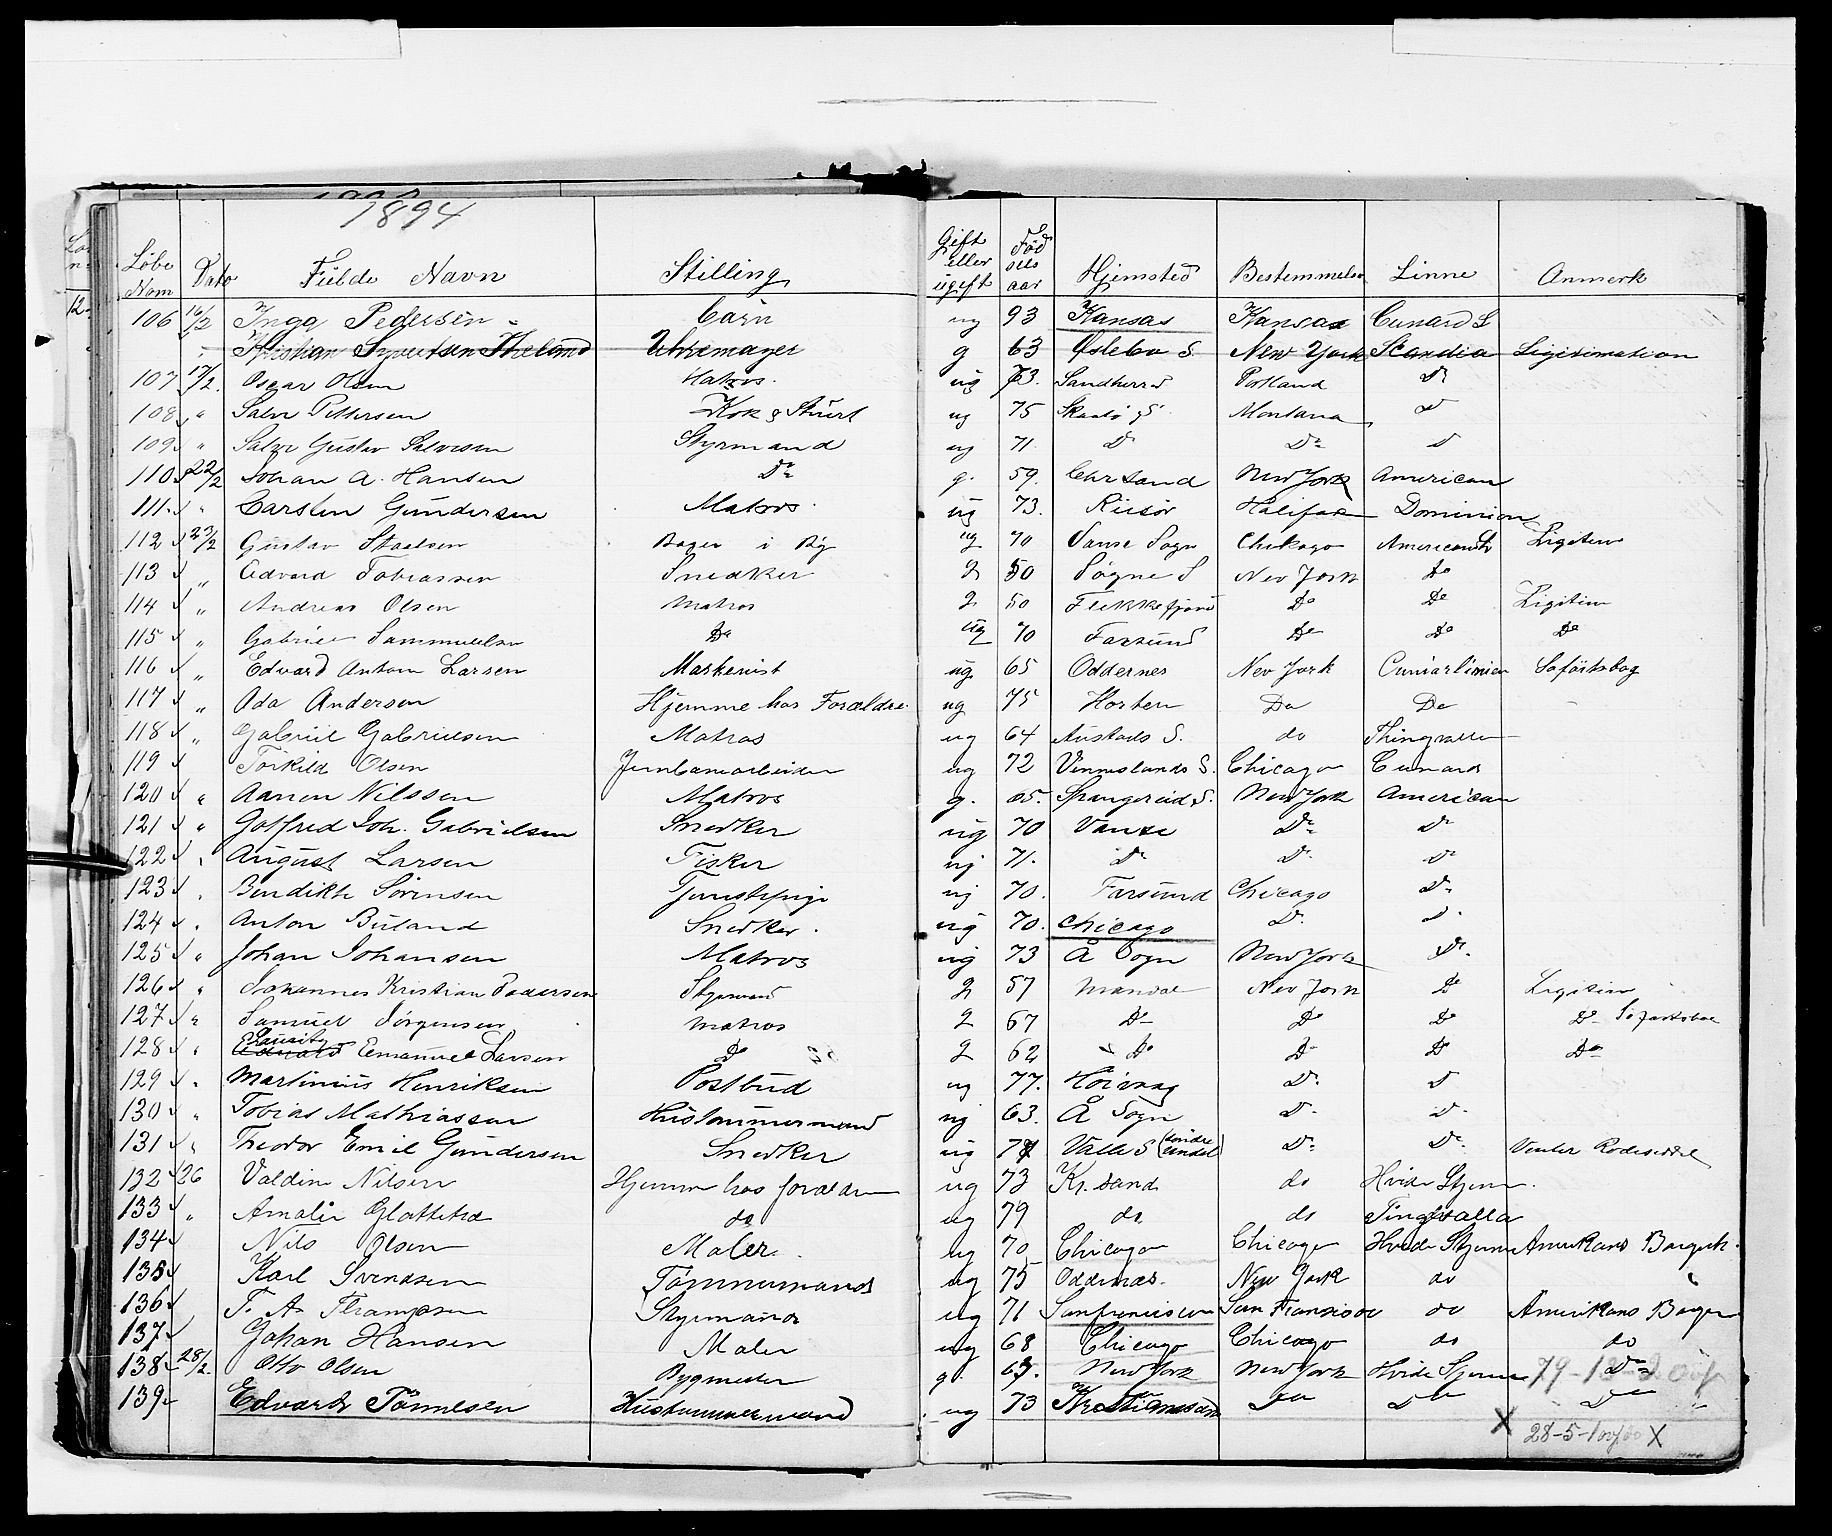 1894
Løbe Nom Dato Fulde Navn Stilling Gift eller ugift Fød sels aar Hjemsted Bestemmelse Linne Anmerk
106 16/2 Inga Pedersen Barn ug 93 Kansas Kansas Cunard L
" Kristian Syvertsen Uhrmager g 63 Øslebø S. New York Scandia Ligitimation
107 17/2 Oscar Olsen Matros. ug 73. Portland D
108 " Salve Pettersen Kok & Stuert ug 75 Montana D
109 " Salve Gustav Salvesen Styrmand ug 71. D D D
110 22/2 Johan A. Hansen Do g. 59. Chrsand New York American
111 " Carsten Gundersen Matros ug 73. Riisør Halifax Dominion
112 23/2 Gustav Staalsen ug 70 Vanse Sogn Chikago Ligitim
113 " Edvard Tobiassen Snedker g 50 Søgne S New York Do
114 " Andreas Olsen Matros g 50 Flekkefjord Do Do Ligitim
115 " Gabriel Sammuelsen Do ug 70 Farsund Do Do Do
116 " Edvard Anton Larsen ug 65 Oddernes New York
117 " Oda Andersen Hjemme hos Forældre ug 75 Horten Do Do
118 " Gabriel Gabrielsen Matros ug 64 do Thingvalla
119 Torkild Olsen Jernbanearbeider ug 72 Venneslands S. Chicago Cunard
120 " Aanen Nilssen Matros g. 65. Spangereid S. New York American
121 " Gotfred Joh. Gabrielsen Snedker ug 70 Vanse Do D
122 " August Larsen Fisker ug 71. D D D
123 " Bendikte Sørensen Tjenestepige ug 70. Farsund Chicago D
124 " Anton Buland Snedker ug 70. Chicago D D
125 " Johan Johansen Matros ug 73 Å Sogn New York D
126 " Johannes Kristian Pedersen Styrmand g 57 Mandal New York Do Ligitim
127 " Samuel Jørgensen Matros g 67 Do Do Do Do
128 " Emanuel Larsen Do g 62 Do Do Do Do
129 " Martinius Henriksen Postbud ug 77. Høivaag D D
130 " Tobias Mathiassen Hustømmermand ug 63. Å Sogn D D
131 " Theodor Emil Gundersen Snedker ug Valle S (Søndre Undal) D D Venter Rodeseddel
132 26 Valdine Nilsen Hjemme hos forældre ug 73 Kr.sand do Hvide Stjerne
133 " Amalie do ug 79 do do Tingvalla
134 Nils Olsen Maler ug 70 Chicago Chicago Hvide Stjerne Amerikans Borgerb.
135 Karl Svendsen Tømmermand ug 75 Oddernes New York do "
136 T. A. Styrmand ug 71 San Fransisco do Amerikans Borger
137 Johan Hansen Maler ug 68 Chicago Chicago do do
138 28/2 Otto Olsen Bygmester g. New York New York Hvide Stjerne Do
139 Edvard Tønnesen Hustømmermand ug 73 Kristianssand Do Do Do
X 28-5- X